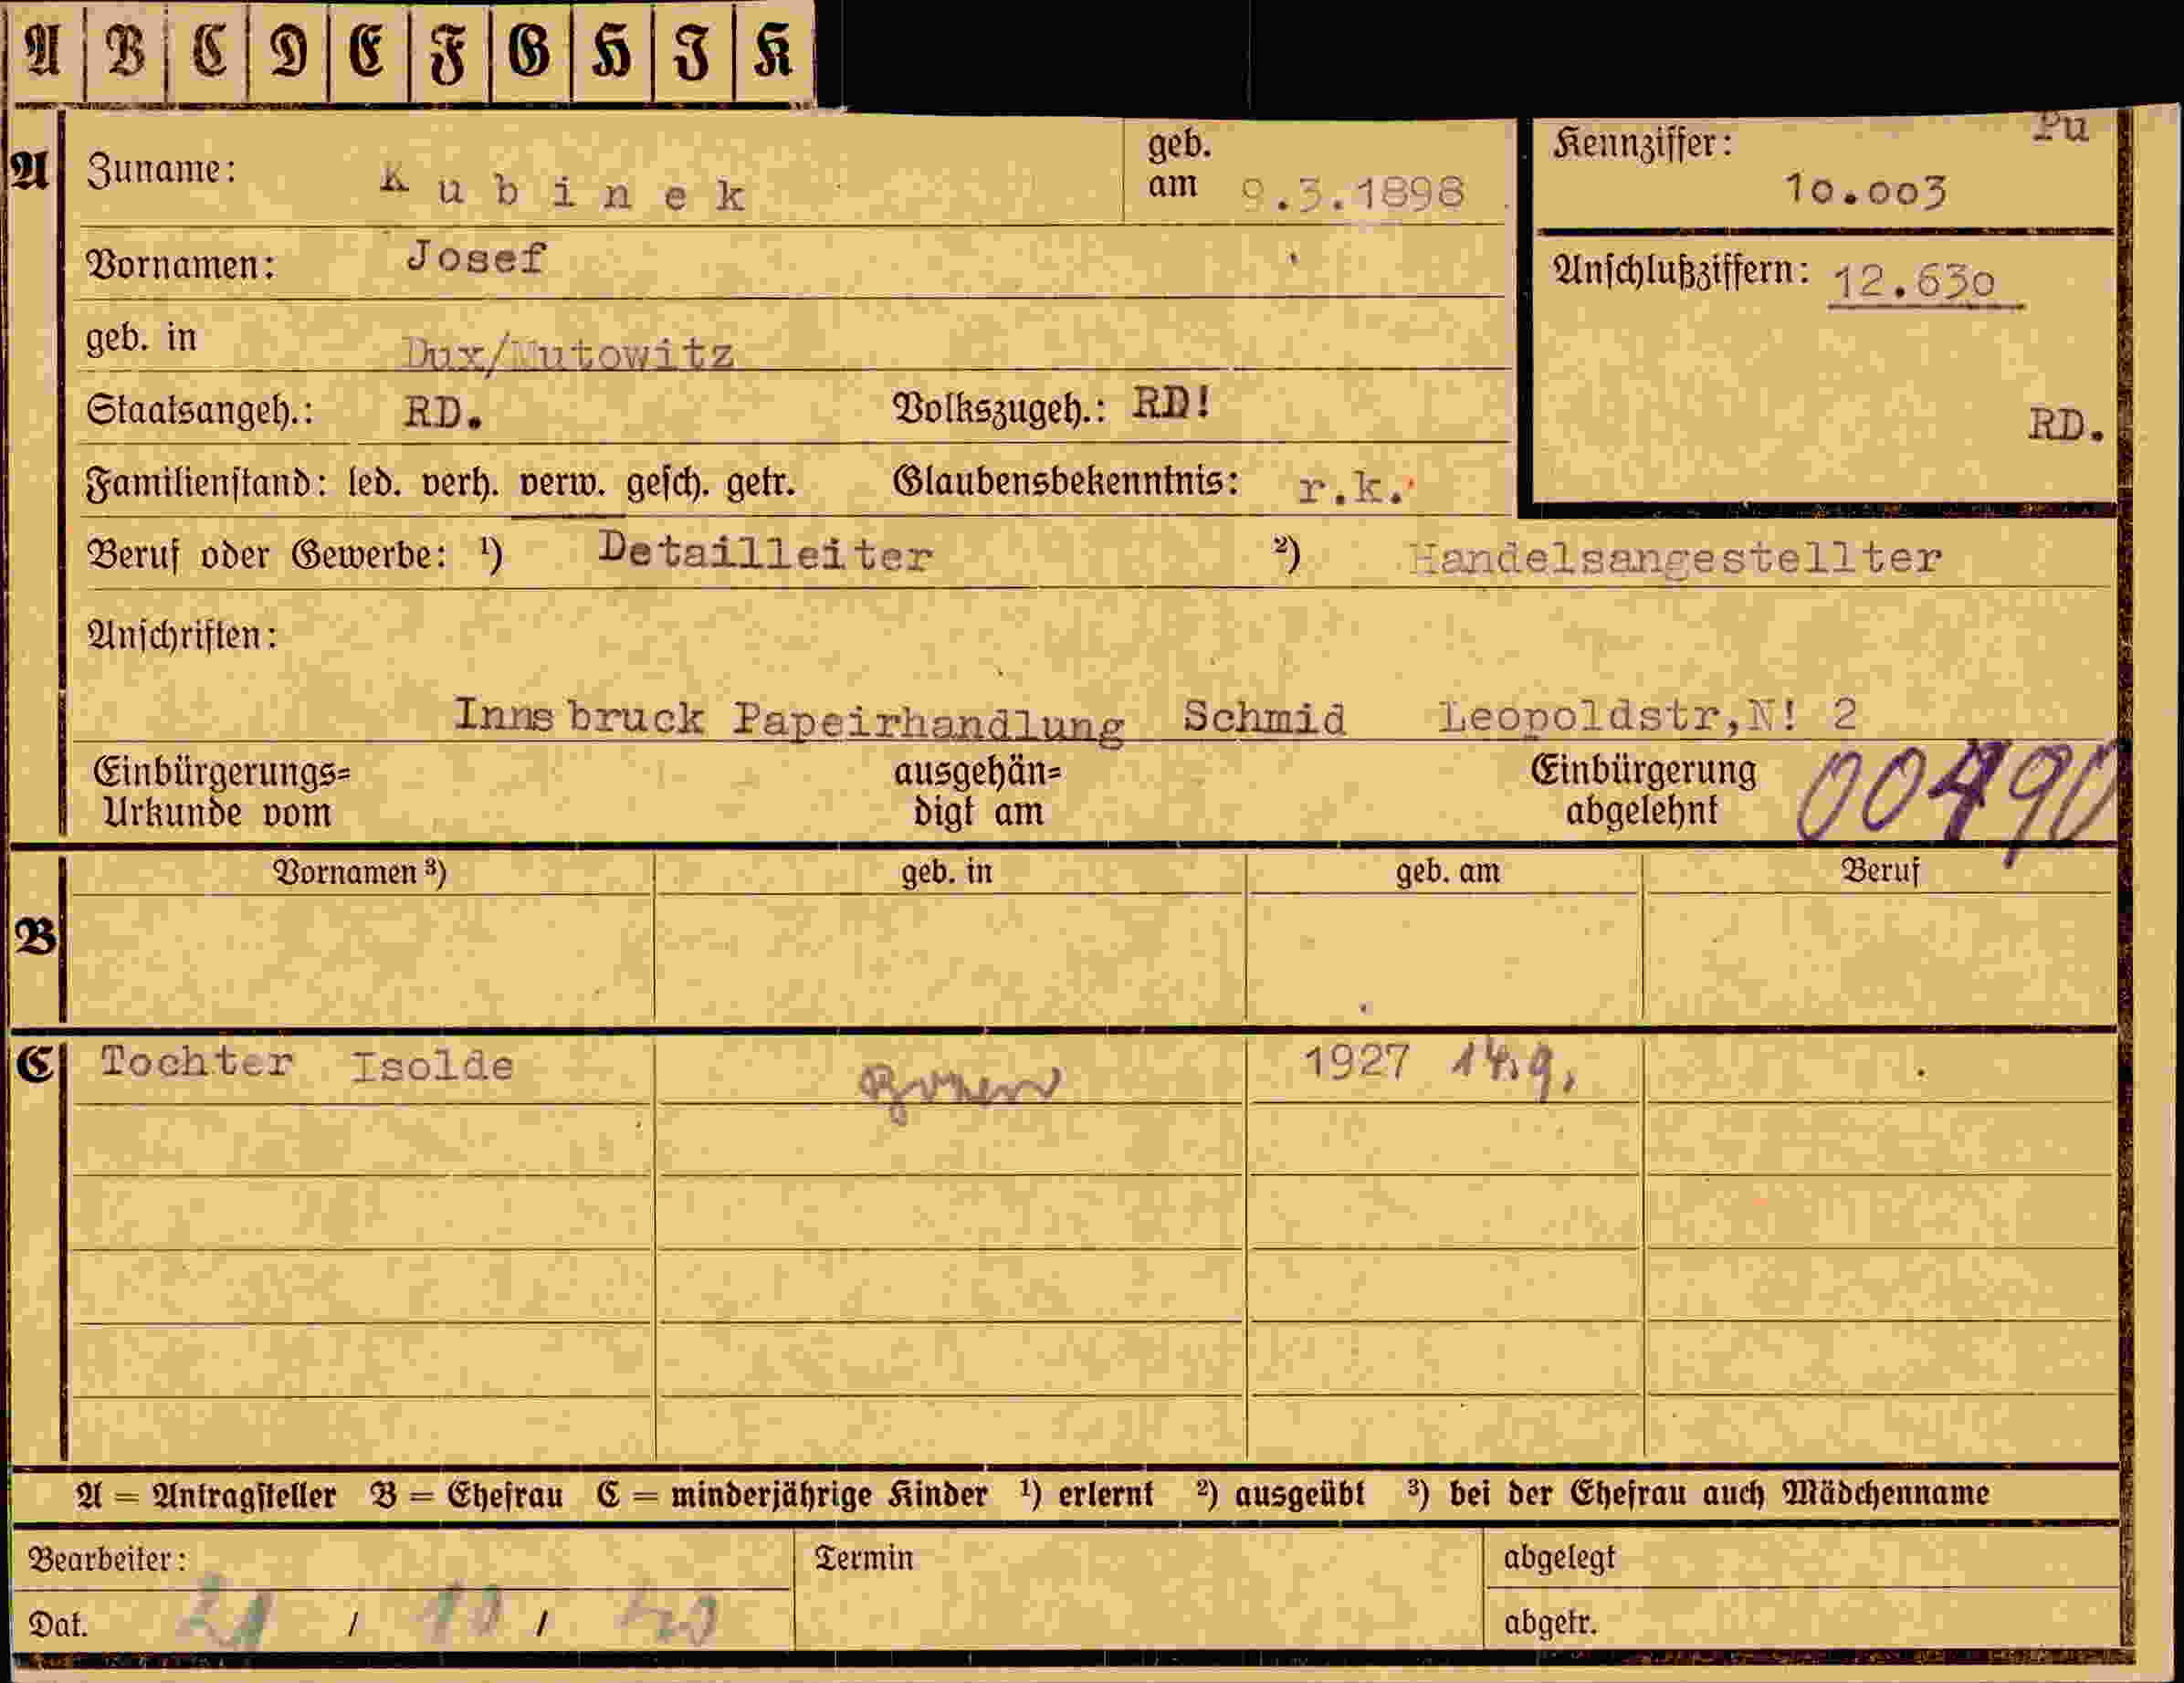 A B C D E F G H I K
A Zuname: Kubinek geb. am 9.3.1898
Kennziffer: Pu
10.003
Vornamen: Josef
Anschlußziffern: 12.630
geb. in Dux/Mutowitz
Staatsangeh.: RD. Volkszugeh.: RD!
RD.
Familienstand: led. verh. verw. gesch. getr. Glaubensbekenntnis: r.k.
Beruf oder Gewerbe: ¹) Detailleiter ²) Handelsangestellter
Anschriften:
Innsbruck Papeirhandlung Schmid Leopoldstr,N! 2
Einbürgerungs= ausgehän= Einbürgerung 00490
Urkunde vom digt am abgelehnt
Vornamen ³) geb. in geb. am Beruf
B
C Tochter Isolde Bozen 1927 14.9.
A = Antragsteller B = Ehefrau C = minderjährige Kinder ¹) erlernt ²) ausgeübt ³) bei der Ehefrau auch Mädchenname
Bearbeiter: Termin abgelegt
Dat. 21 / 10 / 40 abgetr.